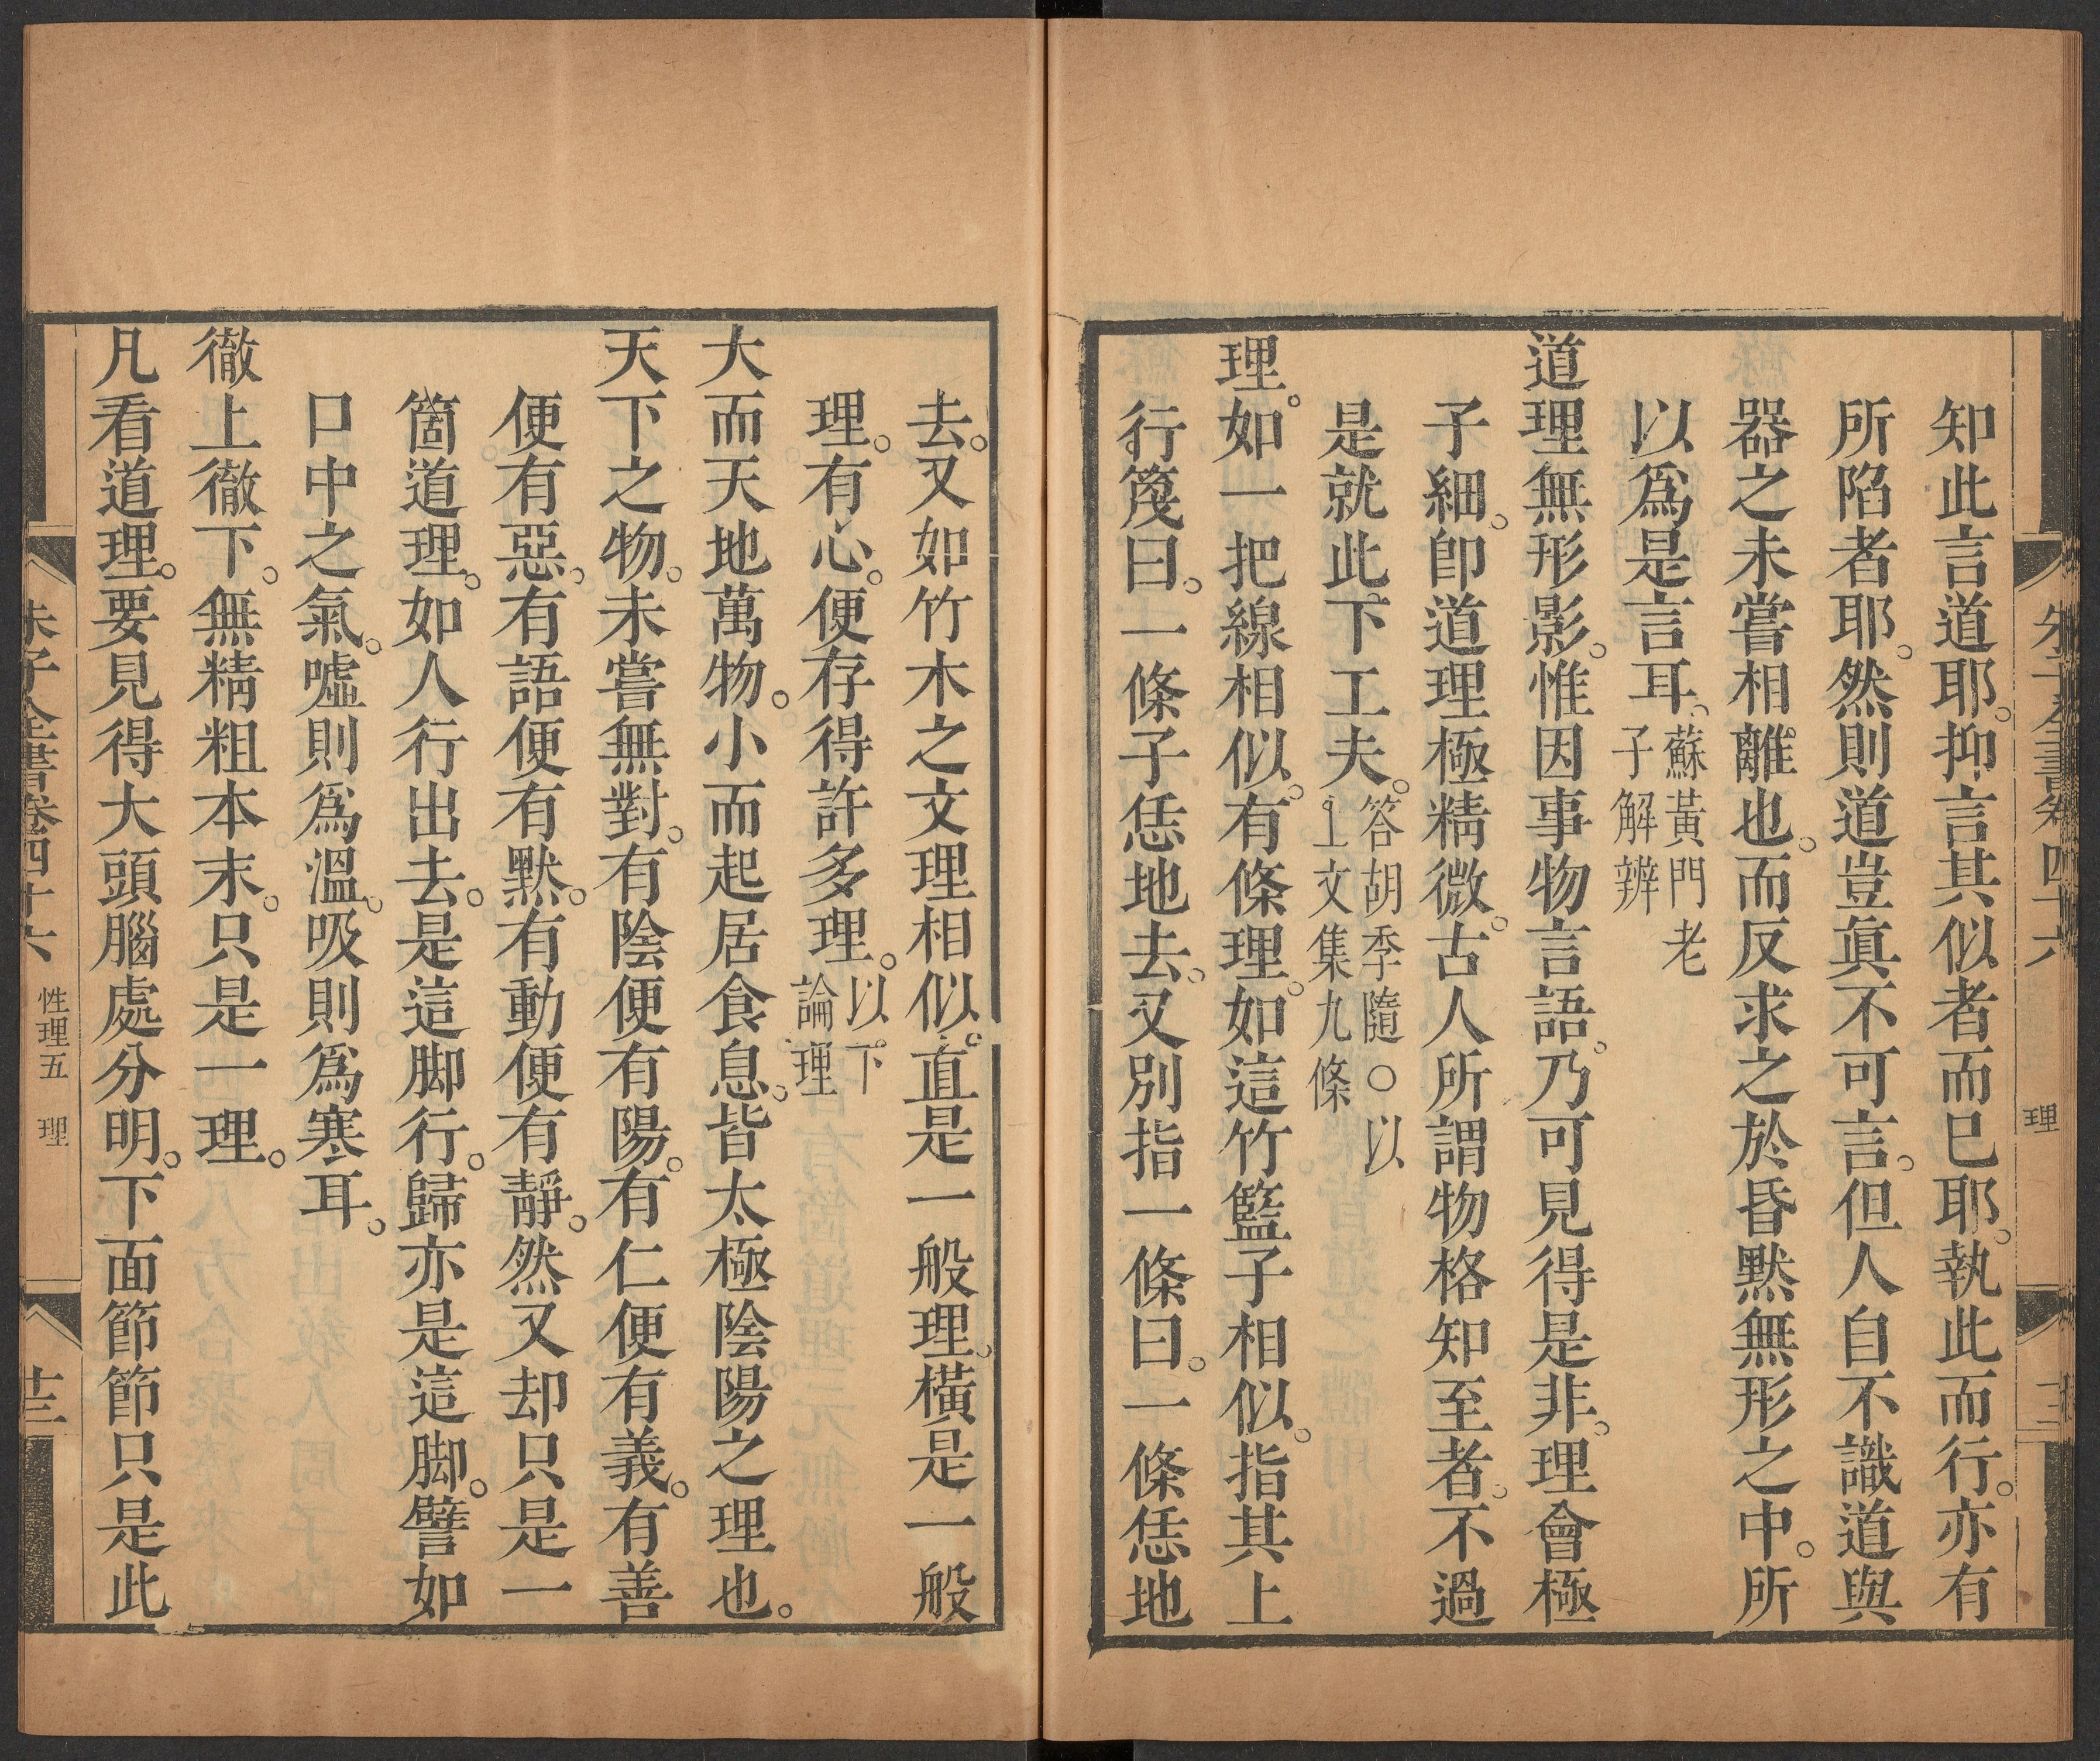 知此言道耶。抑言其似者而已耶。執此而行。亦有
所陷者耶。然則道豈眞不可言。但人自不識道與
器之未嘗相離也。而反求之於昏黙無形之中。所
以爲是言耳。蘇黃門老
子解辨
道理無形影。惟因事物言語。乃可見得是非。理會極
子細。卽道理極精微。古人所謂物格知至者。不過
是就此下工夫。答胡季隨○以
上文集九條
理。如一把線相似。有條理。如這竹籃子相似。指其上
行篾曰。一條子恁地去。又別指一條曰。一條恁地
朱子全書卷四十六
理
十三
去。又如竹木之文理相似。直是一般理。橫是一般
理。有心。便存得許多理。以下
論理
大而天地萬物。小而起居食息。皆太極陰陽之理也。
天下之物。未嘗無對。有陰便有陽。有仁便有義。有善
便有惡。有語便有黙。有動便有靜。然又却只是一
箇道理。如人行出去。是這脚行。歸亦是這脚。譬如
口中之氣。噓則爲溫。吸則爲寒耳。
徹上徹下。無精粗本末。只是一理。
凡看道理。要見得大頭腦處分明。下面節節只是此
朱子全書卷四十六
性理五 理
十三